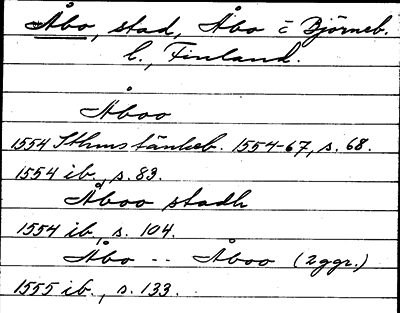 Åbo, stad, Åbo o Björneb.
l., Finland.
Åboo
1554 Sthms tänkeb. 1554-67, s. 68.
1554 ib., s. 83.
Åboo stadh
1554 ib., s. 104.
Åbo -- Åboo (2ggr.)
1555 ib., s. 133.